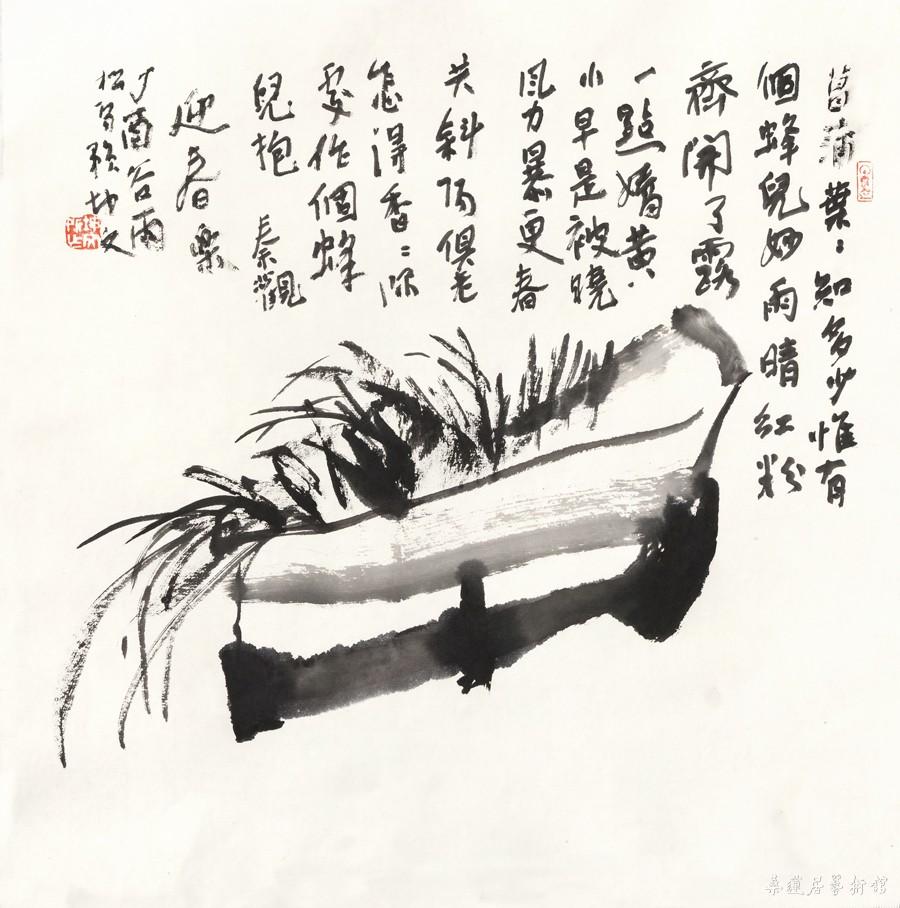 菖蒲葉〻知多少惟有
個蜂兒妙雨晴紅粉
齊開了露
一點嬌黃
小早是被曉
風力暴更春
共斜陽俱老
怎得香〻深
處作個蜂
兒抱 秦觀
迎春樂
丁酉谷雨
松 坤文
桑蓮居藝術館